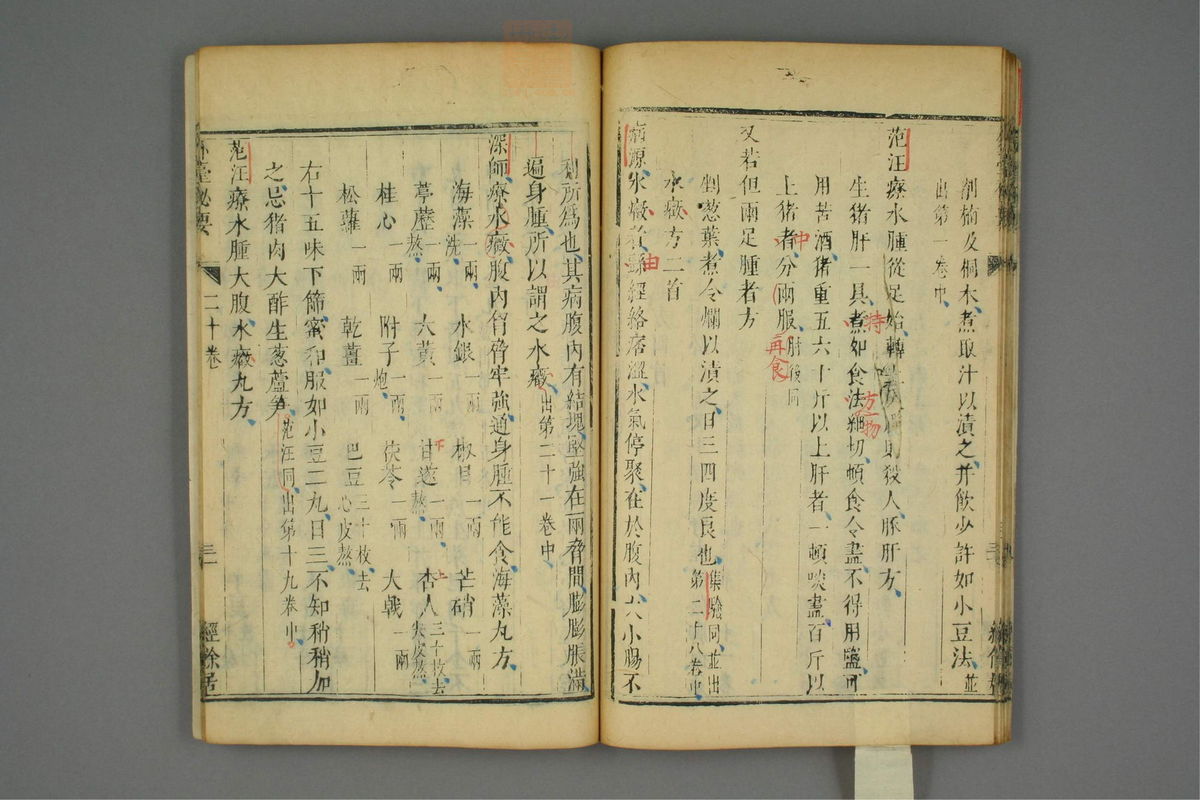 剉楠及桐木煮取汁以漬之并飲少許如小豆法並
出第一卷中
范汪療水腫從足始轉上入腹則殺人豚肝方
生猪肝一具煮如食法細切頓食令盡不得用鹽可
用苦酒猪重五六十斤以上肝者一頓啖盡百斤以
上猪者分兩服肘後同
又若但兩足腫者方
剉葱葉煮令爛以漬之日三四度良也集驗同並出
第二十八卷中
水癥方二首
病源水癥者由經絡痞澀水氣停聚在於腹內大小腸不
利所為也其病腹內有結塊堅強在兩脅間膨膨脹滿
遍身腫所以謂之水癥出第二十一卷中
深師療水癥腹內胷脅牢強通身腫不能食海藻丸方
海藻一兩洗 水銀一兩 椒目一兩 芒硝一兩
葶藶一兩熬 大黃一兩 甘遂一兩熬 杏人三十枚去尖皮熬
桂心一兩 附子一兩炮 茯苓一兩 大戟一兩
松蘿一兩 乾薑一兩 巴豆三十枚去心皮熬
右十五味下篩蜜和服如小豆二丸日三不知稍稍加
之忌猪肉大酢生葱蘆笋范汪同出第十九卷中
范汪療水腫大腹水癥丸方
外臺秘要
二十卷
三
經餘居
中
待
方物
再食
由
下
上